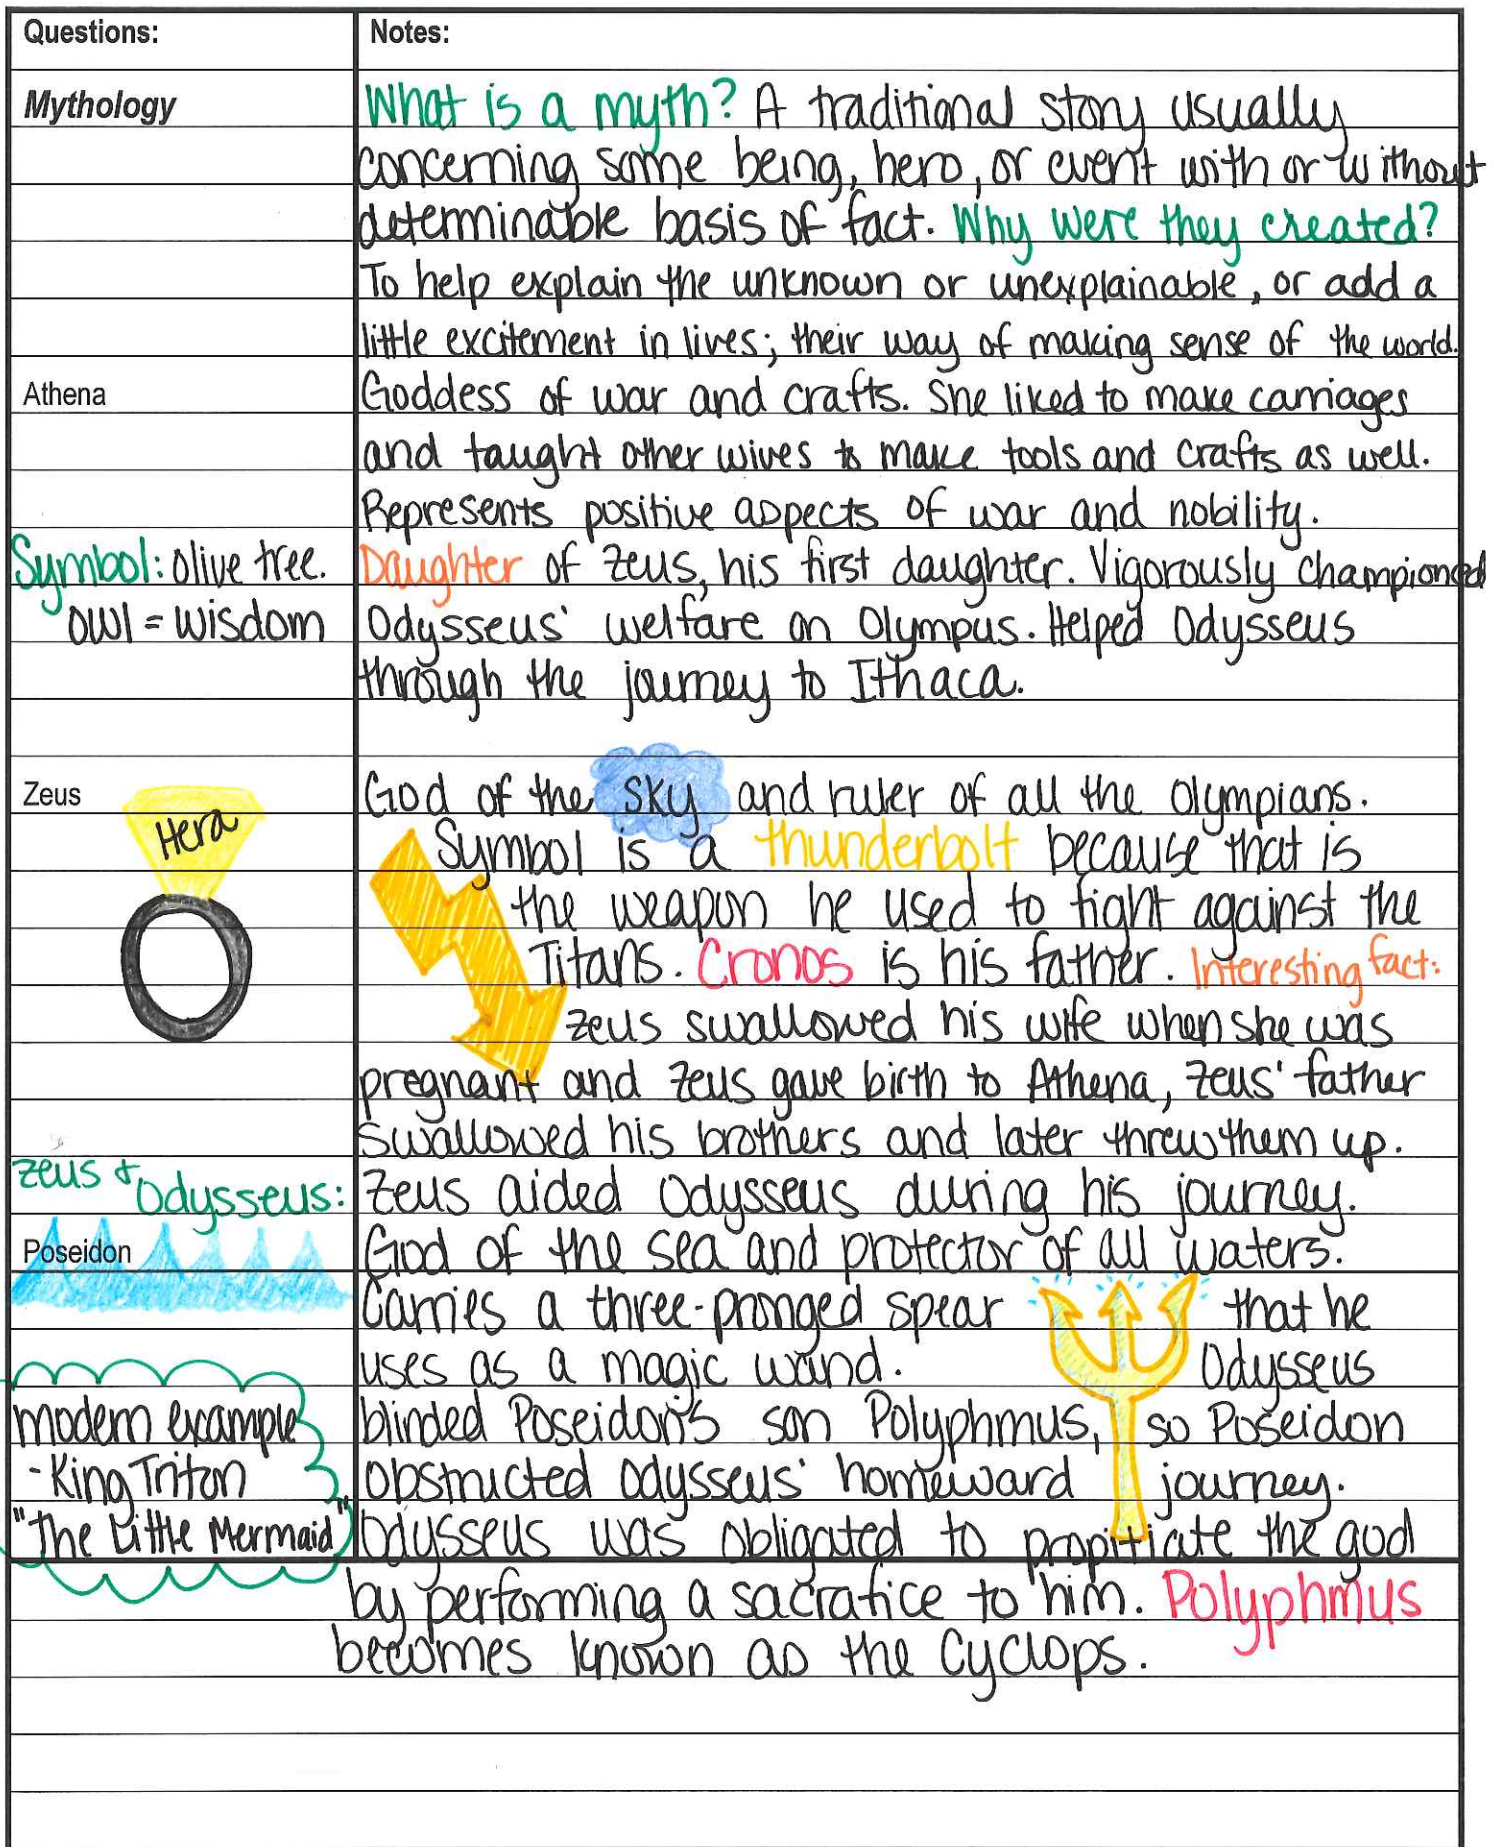 Questions: Notes:
Mythology What is a myth? A traditional story usually
concerning some being, hero, or event with or without
determinable basis of fact. Why were they created?
To help explain the unknown or unexplainable, or add a
little excitement in lives; their way of making sense of the world.
Athena Goddess of war and crafts. She liked to make carriages
and taught other wives to make tools and crafts as well.
Represents positive aspects of war and nobility.
Symbol: olive tree. Daughter of Zeus, his first daughter. Vigorously championed
owl = wisdom Odysseus' welfare on Olympus. Helped Odysseus
through the journey to Ithaca.
Zeus God of the sky and ruler of all the Olympians.
Hera Symbol is a thunderbolt because that is
the weapon he used to fight against the
Titans. Cronos is his father. Interesting fact:
Zeus swallowed his wife when she was
pregnant and Zeus gave birth to Athena, Zeus' father
swallowed his brothers and later threw them up.
Zeus & Odysseus: Zeus aided Odysseus during his journey.
Poseidon God of the sea and protector of all waters.
Carries a three-pronged spear that he
uses as a magic wand. Odysseus
modern example blinded Poseidon's son Polyphmus, so Poseidon
-King Triton obstructed Odysseus' homeward journey.
"The Little Mermaid" Odysseus was obligated to propitiate the god
by performing a sacrafice to him. Polyphmus
becomes known as the Cyclops.